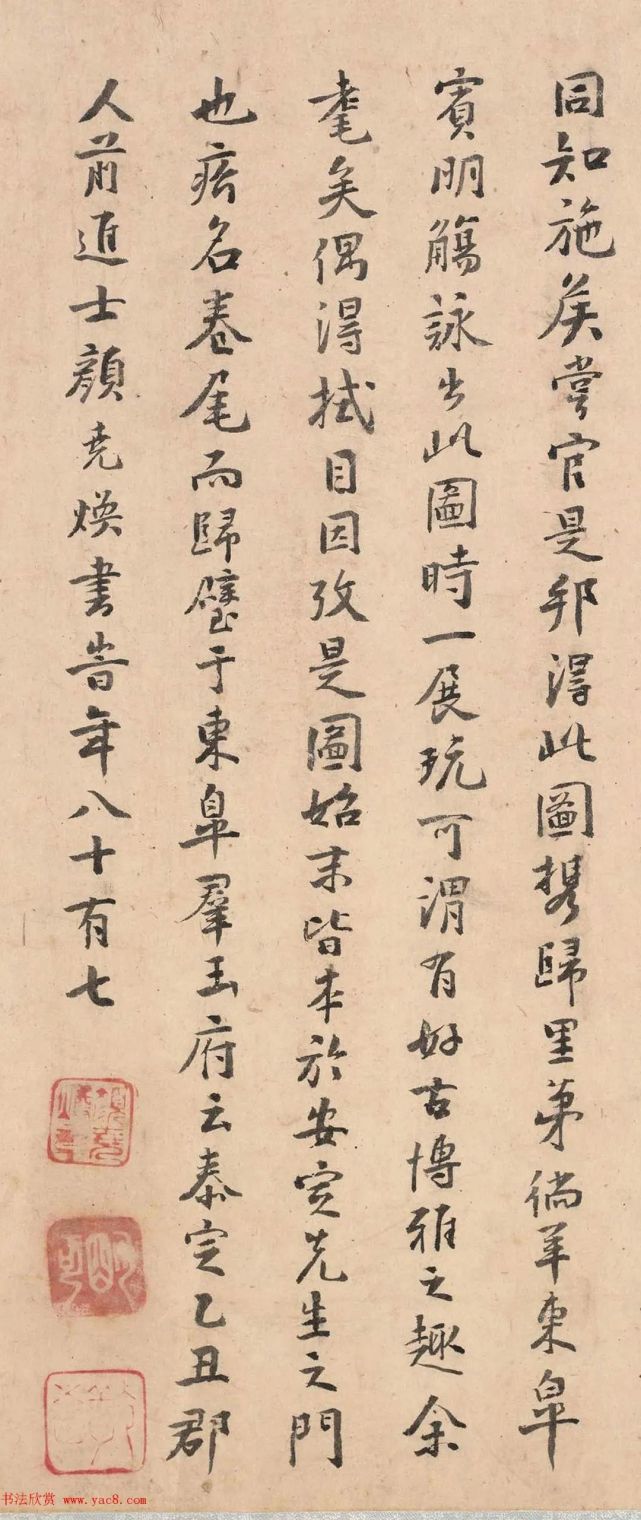 同知施矦嘗官是邦得此圖携歸里第徜羊東皐
賓朋觴詠出此圖時一展玩可謂有好古博雅之趣余
耄矣偶得拭目因攷是圖始末皆本於安定先生之門
也痦名卷尾而歸璧于東皐羣玉府云泰定乙丑郡
人前進士顏堯煥書旹年八十有七
书法欣赏 www.yac8.com